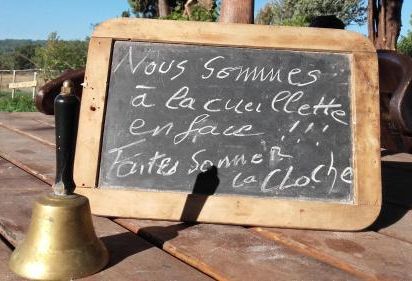 Nous Sommes
à la cueillette
en face !!!
Faites Sonner
la Cloche